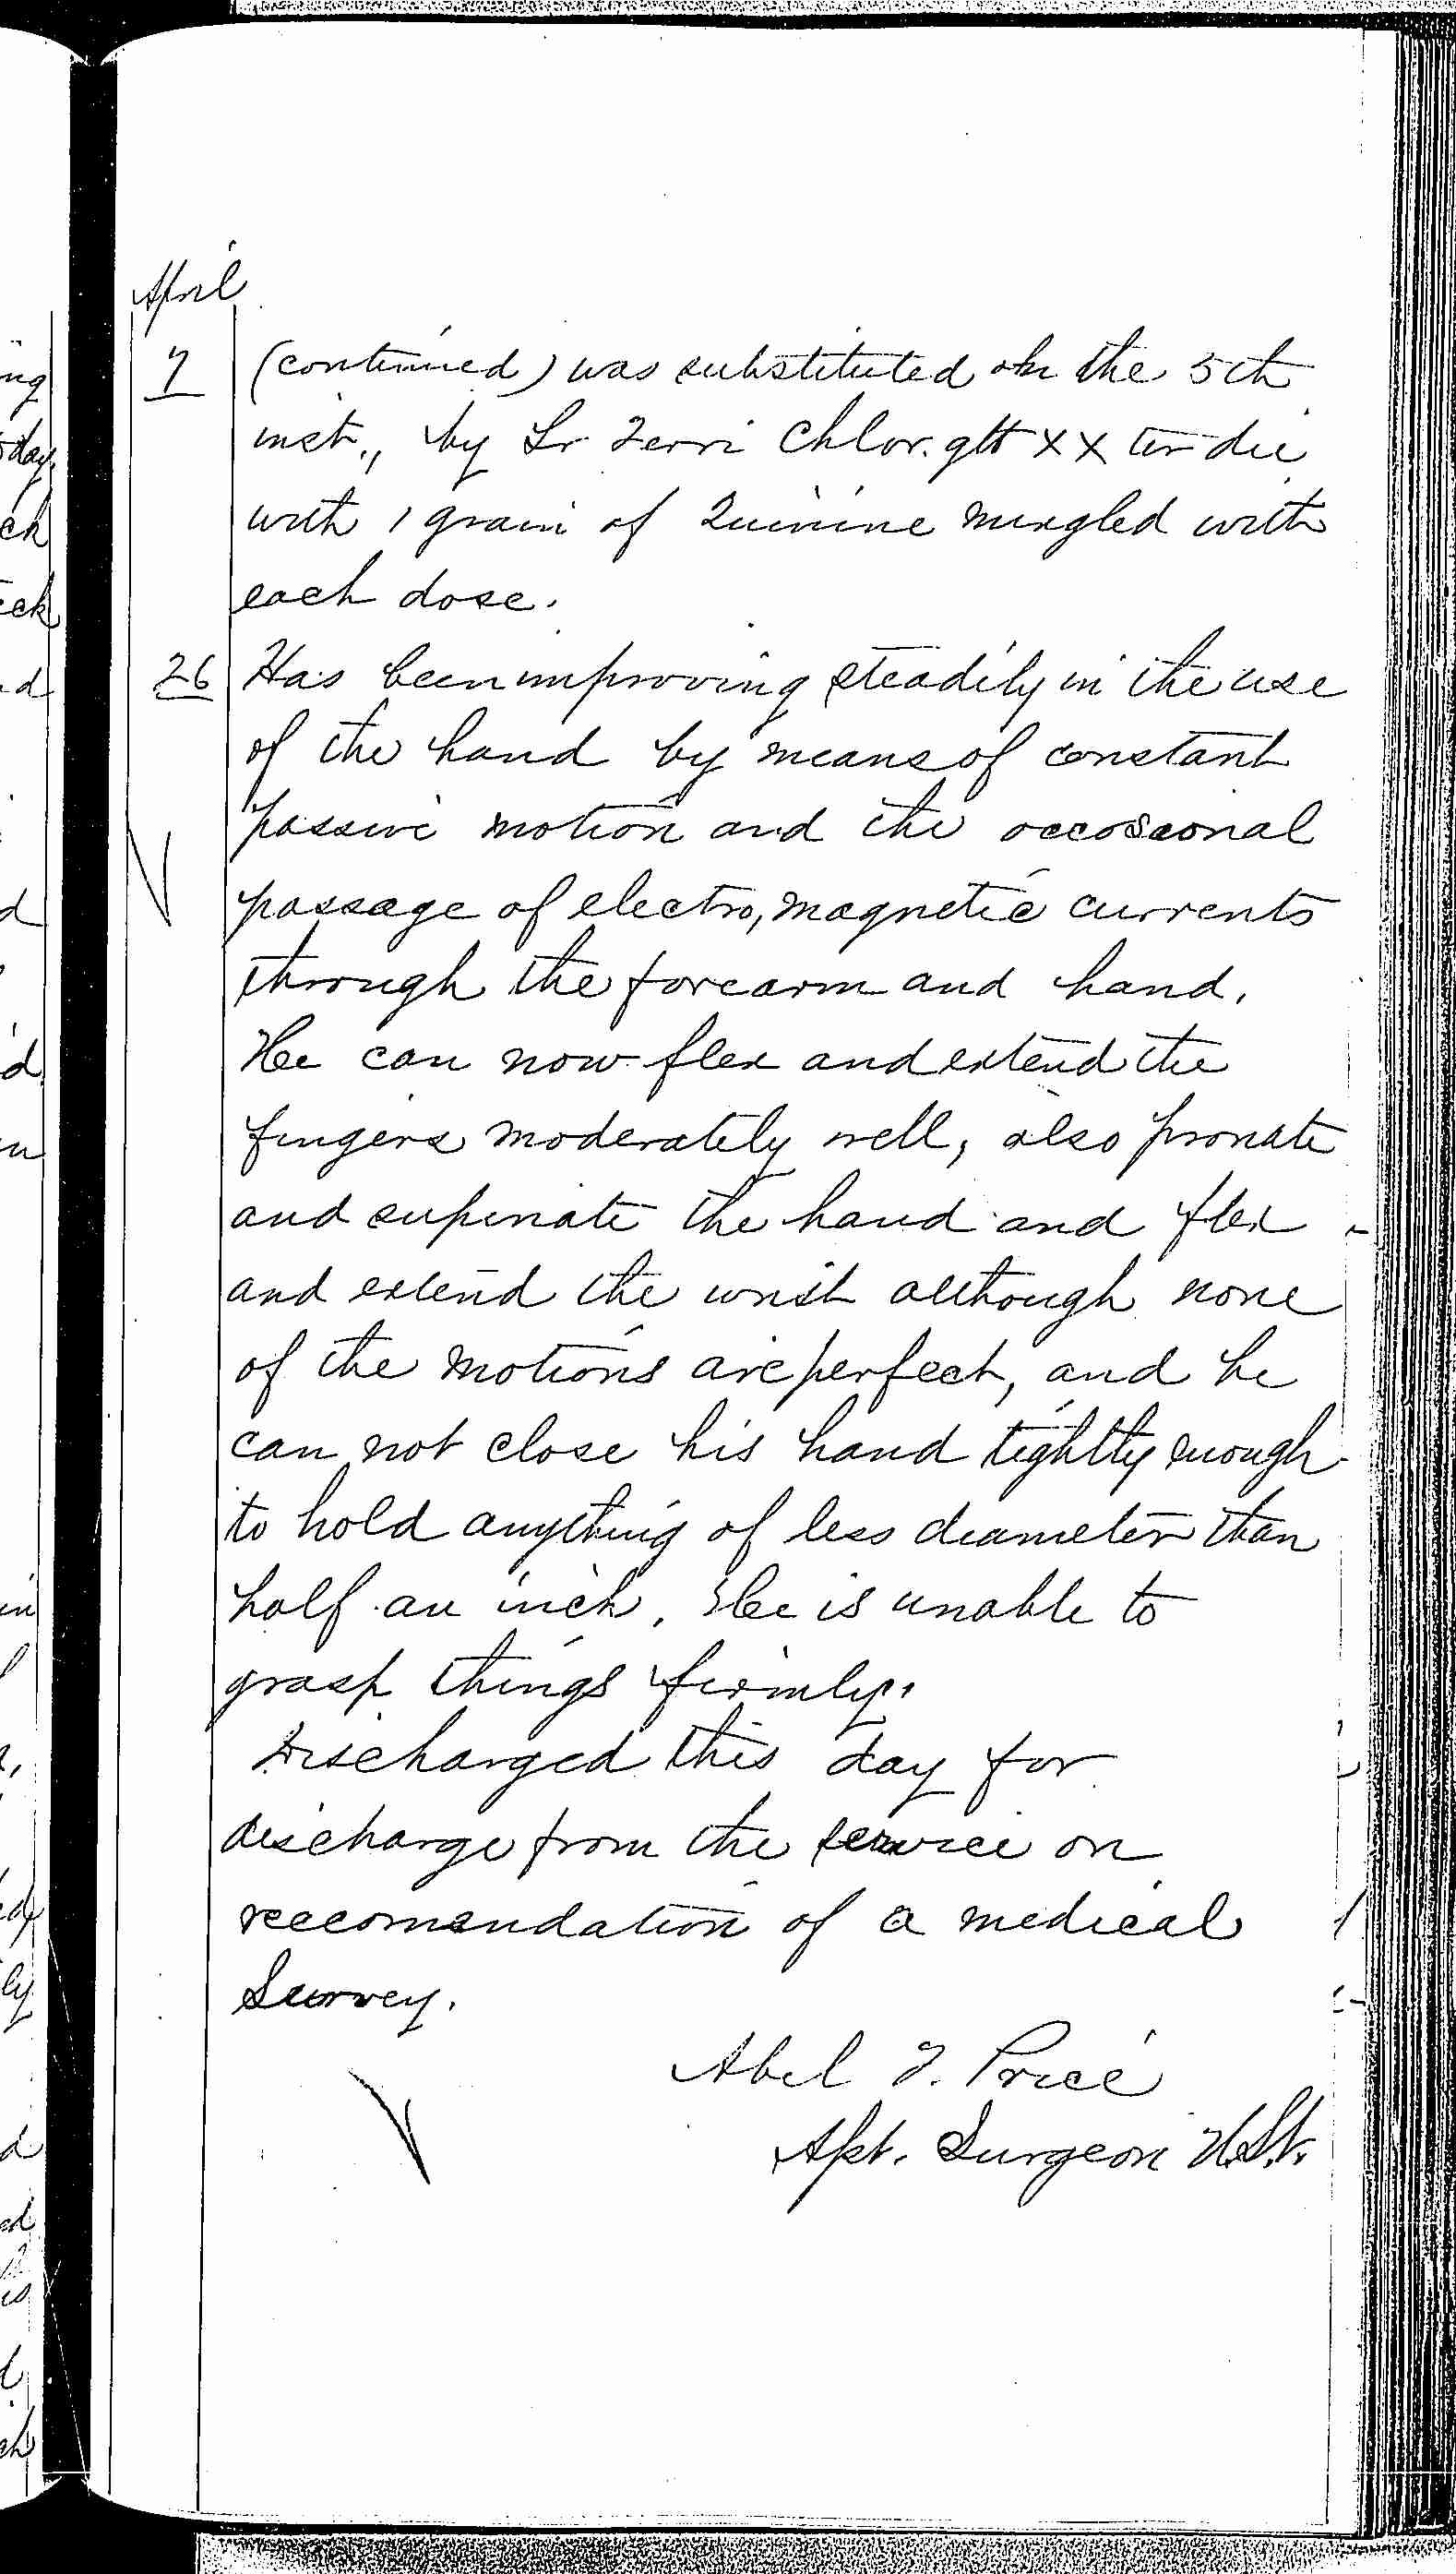 April
7 (continued) was substituted on the 5th
inst., by Lr Ferri Chlor. gtt XX ter die
with 1 grain of Quinine mingled with
each dose.
26 Has been improving steadily in the use
of the hand by means of constant
passive motion and the occasional
passage of electro, magnetic currents
through the forearm and hand.
He can now flex and extend the
fingers moderately well, also pronate
and supinate the hand and flex
and extend the wrist although none
of the motions are perfect, and he
can not close his hand tightly enough
to hold anything of less diameter than
half an inch. He is unable to
grasp things firmly.
Discharged this day for
discharge from the service on
reccomendation of a medical
Survey.
Abel F. Price
Apt. Surgeon U.S.N.